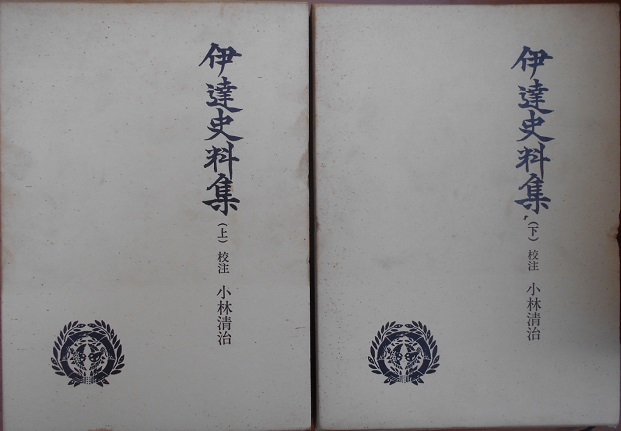 伊達史料集(上)校注 小林清治
伊達史料集(下)校注 小林清治